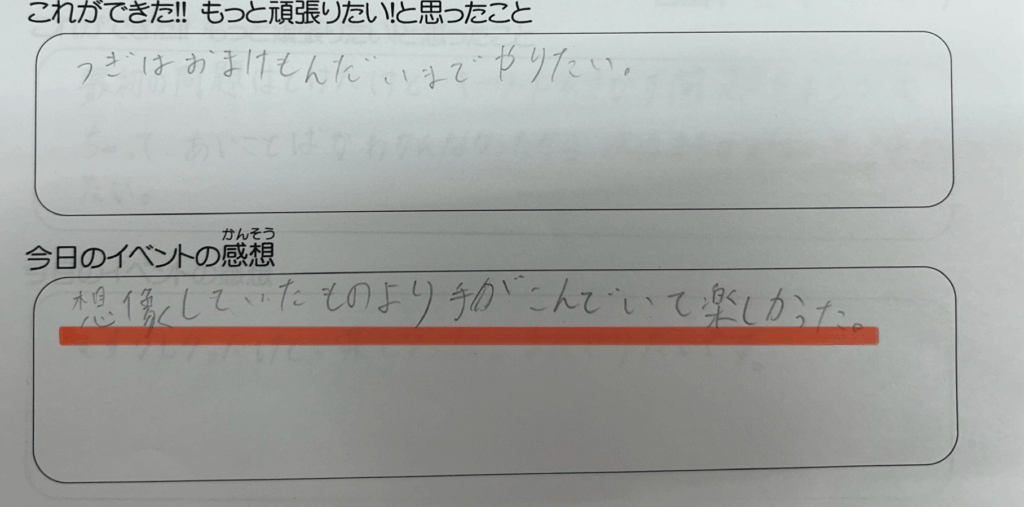 これができた!! もっと頑張りたい!と思ったこと
つぎはおまけもんだいまでやりたい。
かんそう
今日のイベントの感想
想像していたものより手がこんでいて楽しかった。